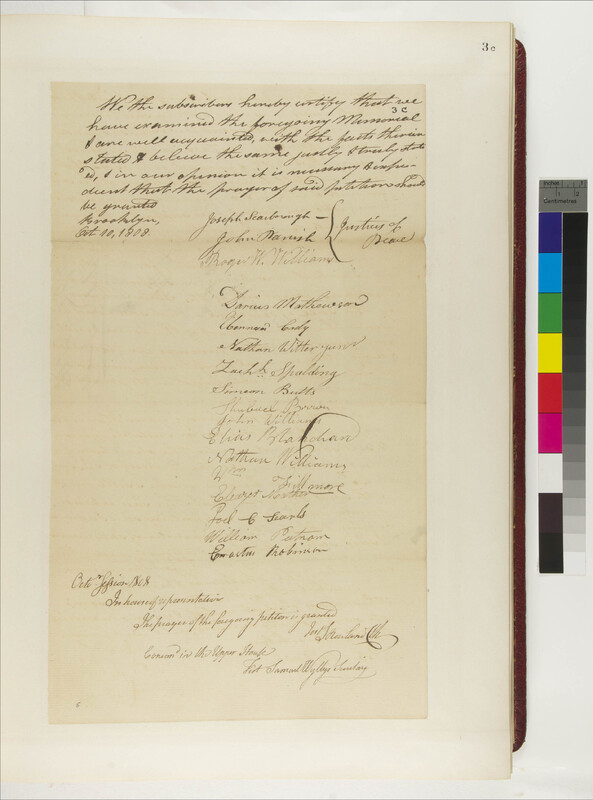 3c
We the subscribers hereby certify that we
3 C
have examined the foregoing Memorial
& are well acquainted with the facts therein
stated & believe the same justly & truly stat
ed, & in our opinion it is necessary & expe-
dient that the prayer of said petition should
be granted
Brooklyn,
Oct 10, 1808.
Joseph Scarborough
John Parish
Justices of
Peace
Roger W. Williams
Darius Mathewson
Ebenezer
Nathan Witter
Zach Spalding
Simeon Butts
Shubael Brown
John Williams
Elias Blanchan
Nathan Williams
Wm Fillmore
Eleazer
C Searls
William Putnam
Erastus Robinson
Octr Session 1808
In house of representatives
The prayer of the foregoing petition is granted
Concurd in the Upper House
Test Samuel Wyllys Secretary
Inches 1 2
Centimetres